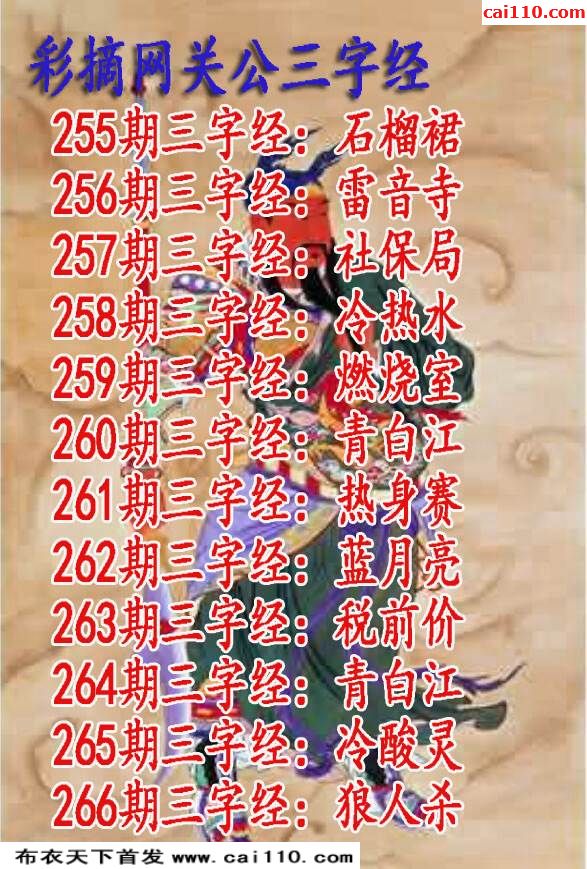 cai110.com
彩摘网关公三字经
255期三字经：石榴裙
256期三字经：雷音寺
257期三字经：社保局
258期三字经：冷热水
259期三字经：燃烧室
260期三字经：青白江
261期三字经：热身赛
262期三字经：蓝月亮
263期三字经：税前价
264期三字经：青白江
265期三字经：冷酸灵
266期三字经：狼人杀
布衣天下首发 www.cai110.com